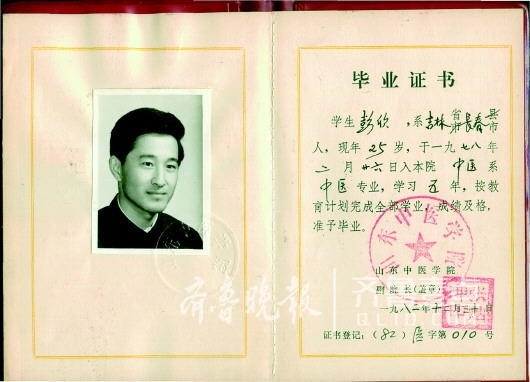 毕业证书
学生 彭欣 ,系 吉林 省市 长春 县市
人,现年 25 岁,于一九七八年
二月廿六日入本院 中医 系
中医 专业,学习 五 年,按教
育计划完成全部学业,成绩及格,
准予毕业。
山东中医学院
山东中医学院
副院长(盖章)
一九八二年十二月三十日
证书登记:(82)医字第010号
齐鲁晚报